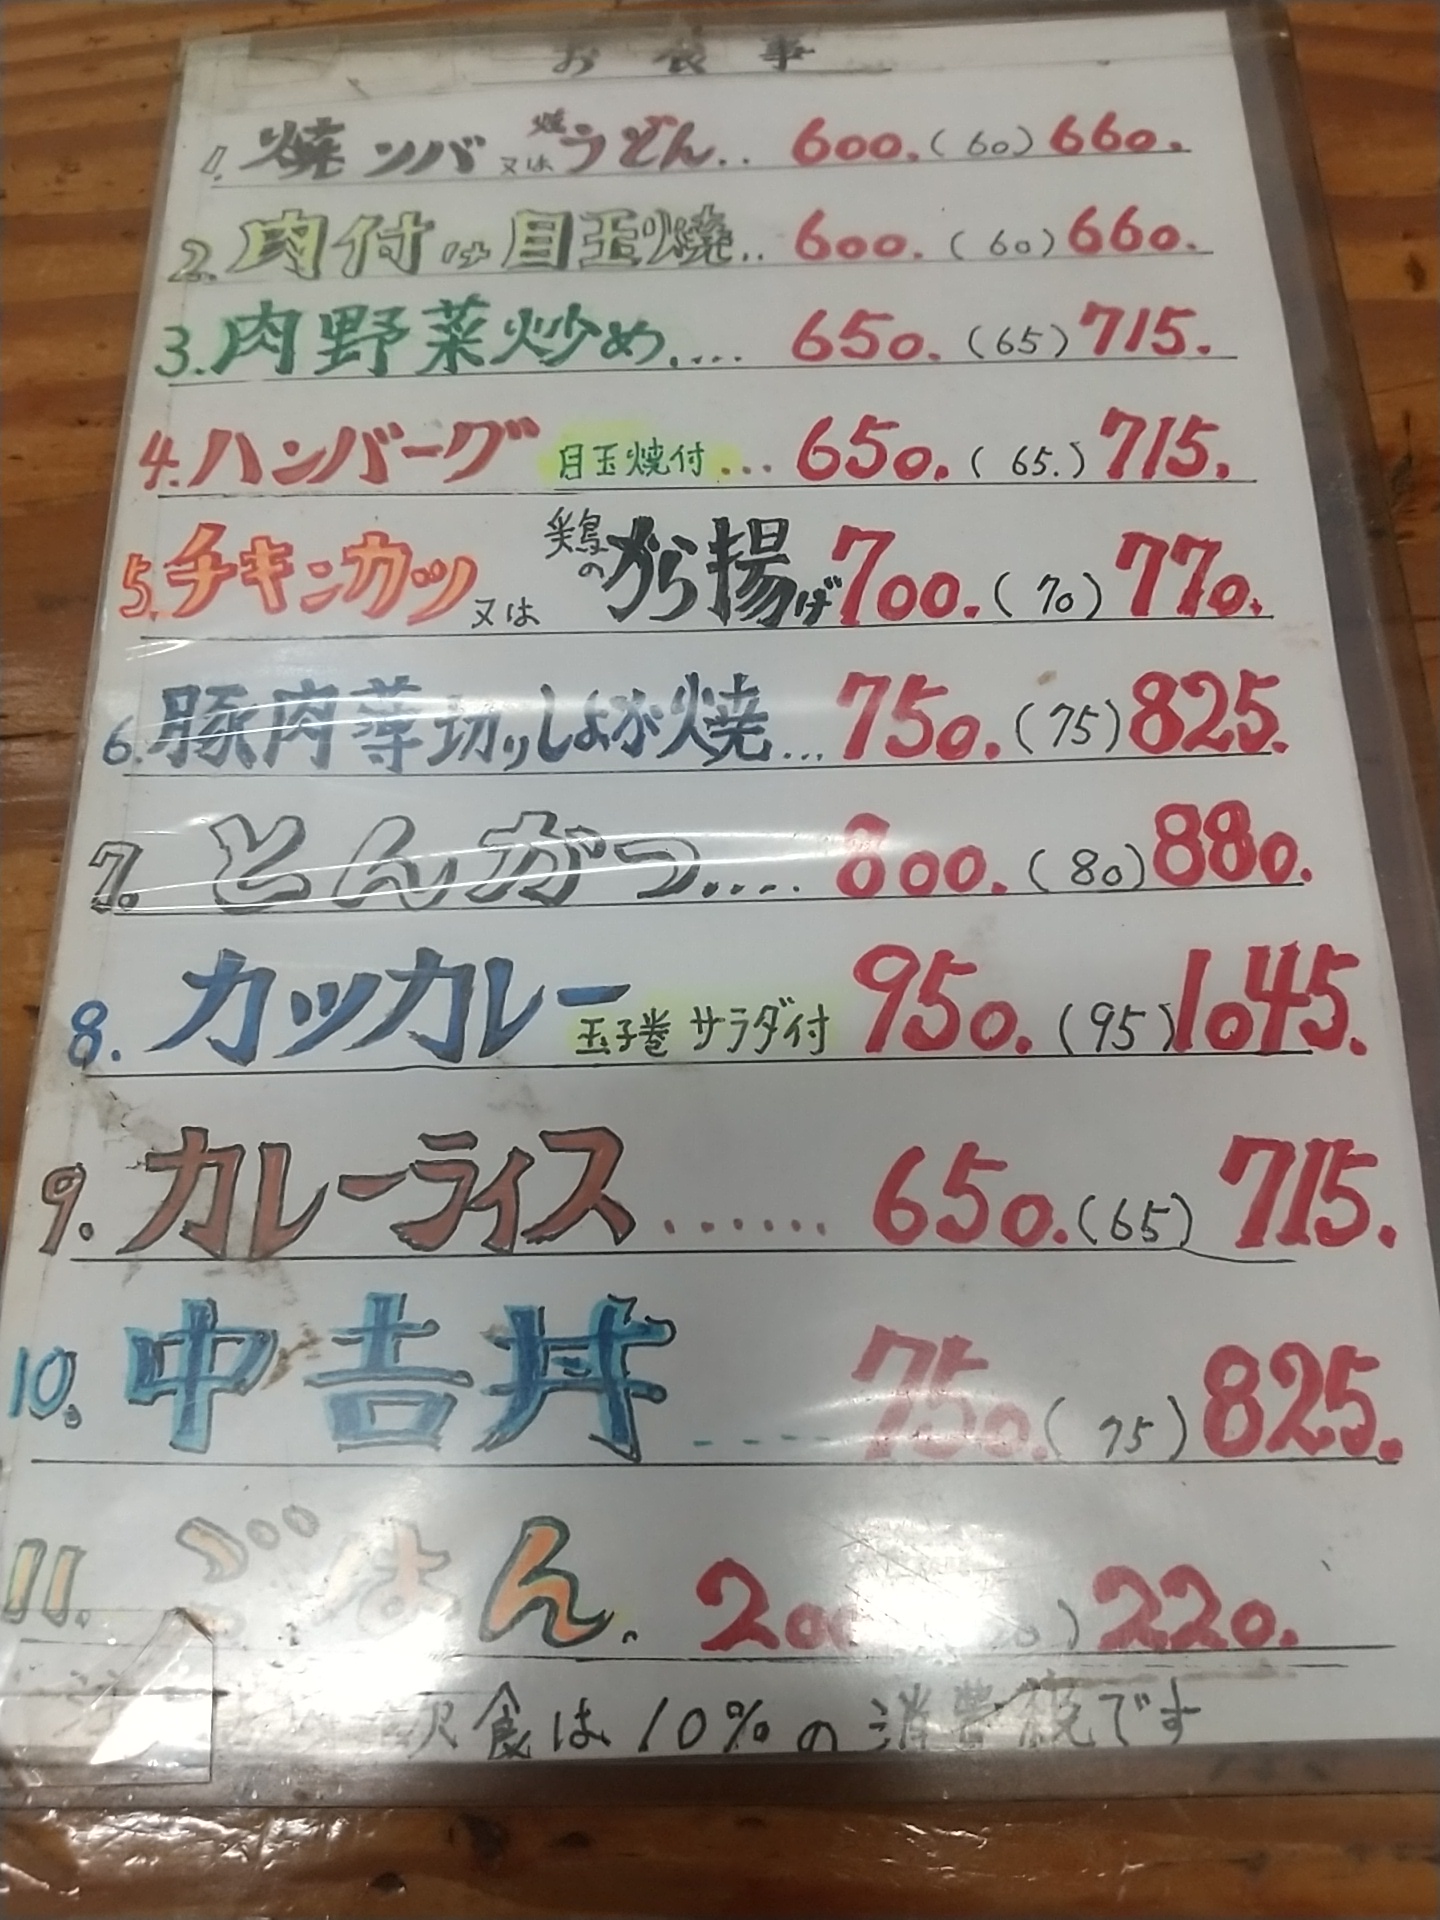 お食事
1. 焼ソバ 又は 焼うどん.. 600.(60)660.
2. 肉付け目玉焼.. 600.(60)660.
3. 肉野菜炒め.... 650.(65)715.
4. ハンバーグ 目玉焼付... 650.(65.)715.
5. チキンカツ 又は 鶏のから揚げ 700.(70)770.
6. 豚肉薄切りしょが焼... 750.(75)825.
7. とんかつ.... 800.(80)880.
8. カツカレー 玉子巻 サラダ付 950.(95)1045.
9. カレーライス...... 650.(65)715.
10. 中吉丼 .... 750.(75)825.
11. ごはん. 200 ) 220.
食は10%の消費税です